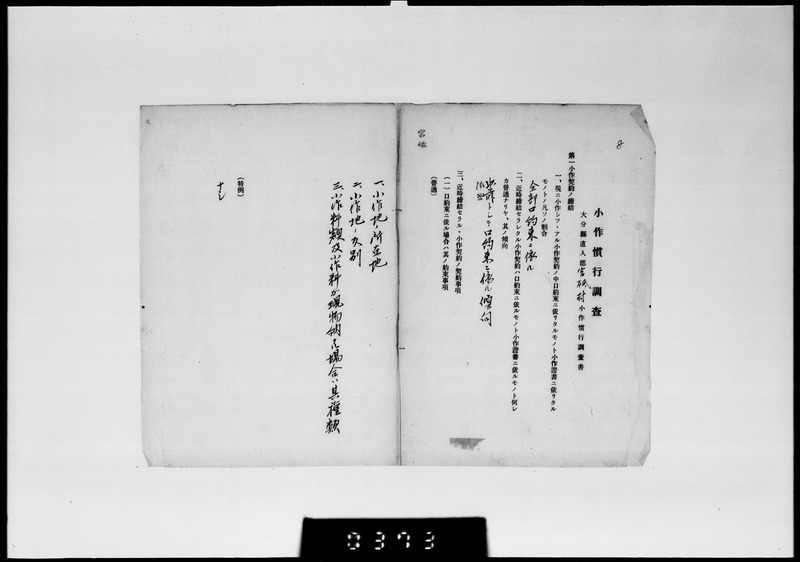 8
小作慣行調査
大分縣直入郡宮砥村小作慣行調査書
第一小作契約ノ締結
一、現ニ小作シツヽアル小作契約ノ中口約束ニ依リタルモノト小作證書ニ依リタル
モノトノ凡ソノ割合
全部口約束ニ依ル
二、近時締結セラレタル小作契約ハ口約束ニ依ルモノト小作證書ニ依ルモノト何レ
カ普通ナリヤ、其ノ傾向
トシテ口約束ニ依ル傾向
三、近時締結セラルヽ小作契約ノ契約事項
(一)口約束ニ依ル場合ハ其ノ約束事項
(普通)
宮砥
一、小作地ノ所在地
二、小作地ノ反別
三、小作料額及小作料ガ現物納ナル場合ハ其種類
(特例)
ナシ
0373